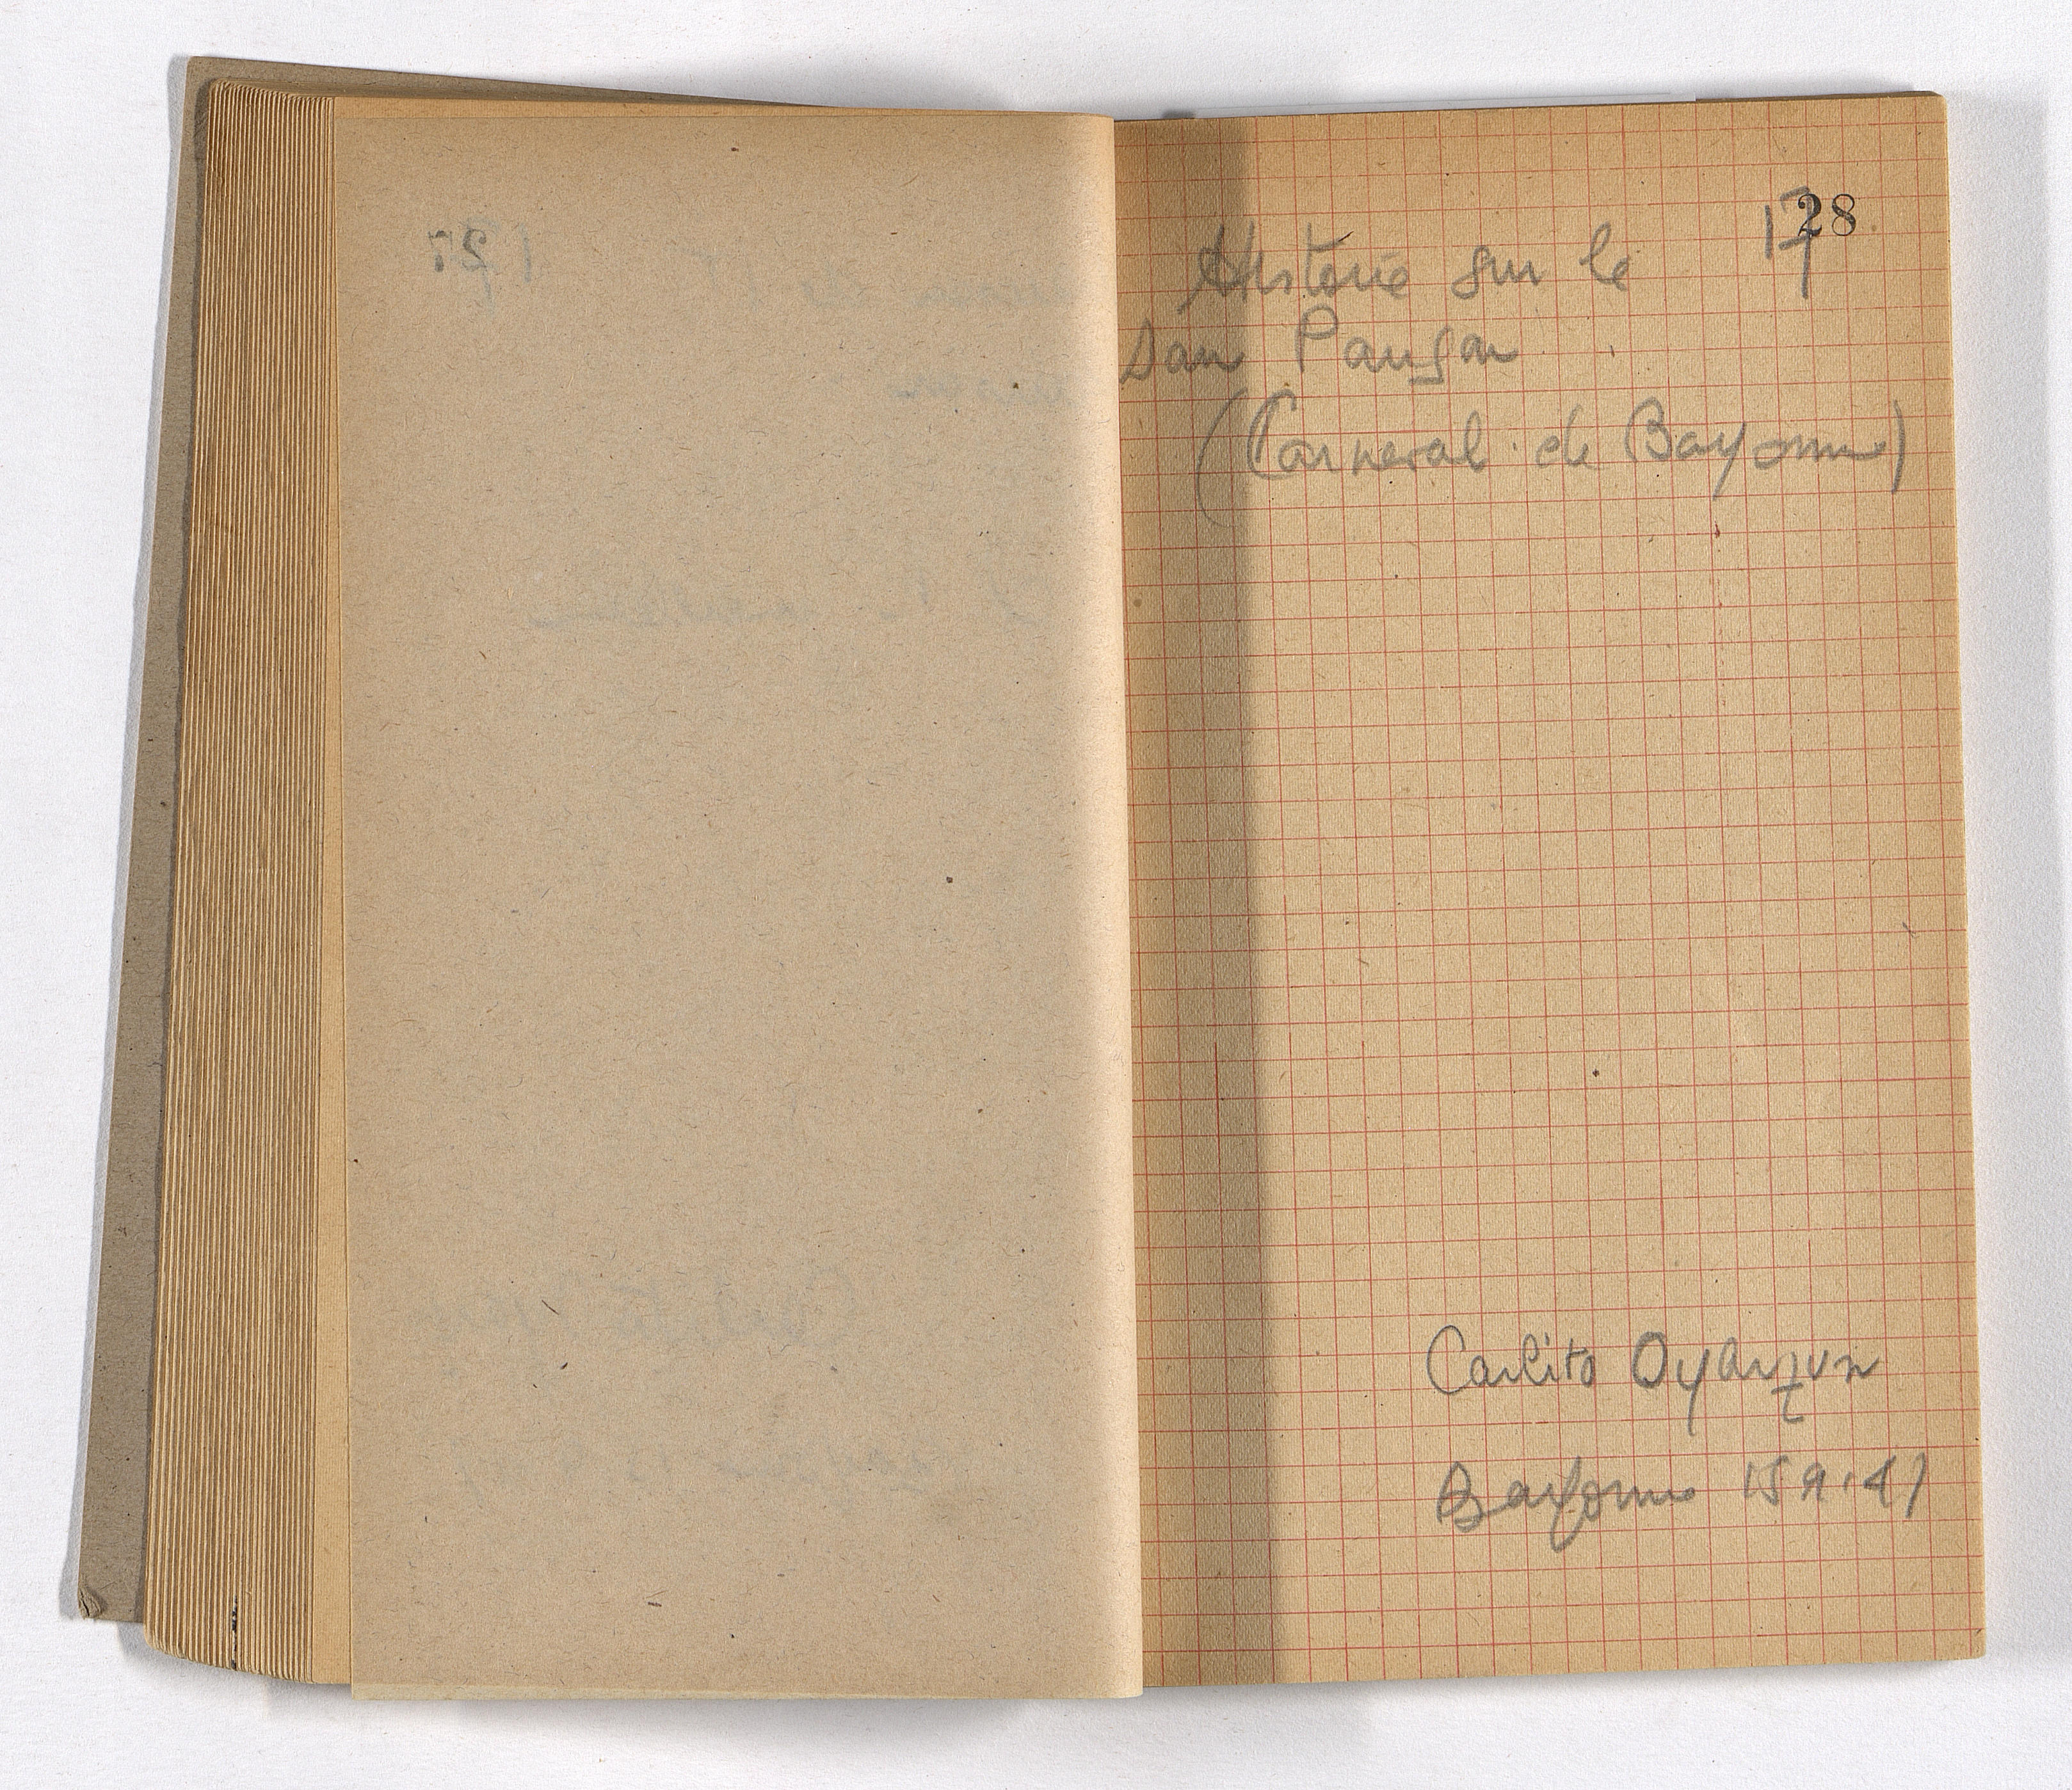 17
28
Histoire sur le
San Pansar
(Carneval de Bayonne)
Carlito Oyarzun
Bayonne 15 9.47